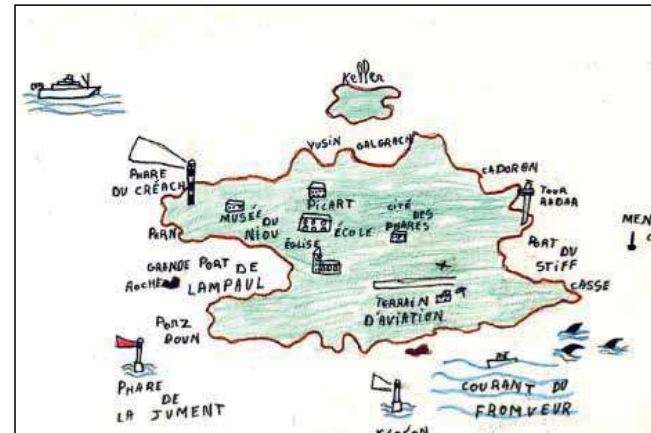 Keller
YUSIN GALGRACH
CADORAN
PHARE
DU CRÉACH
TOUR
RADAR
PICART
MUSÉE
DU
NIOU
CITÉ
DES
PHARES
ÉCOLE
PERN
ÉGLISE
MEN
PORT
DU
STIFF
GRANDE
ROCHE
PORT DE
LAMPAUL
CASSE
TERRAIN
D'AVIATION
PORZ
DOUN
PHARE
DE
LA JUMENT
COURANT DU
FROMVEUR